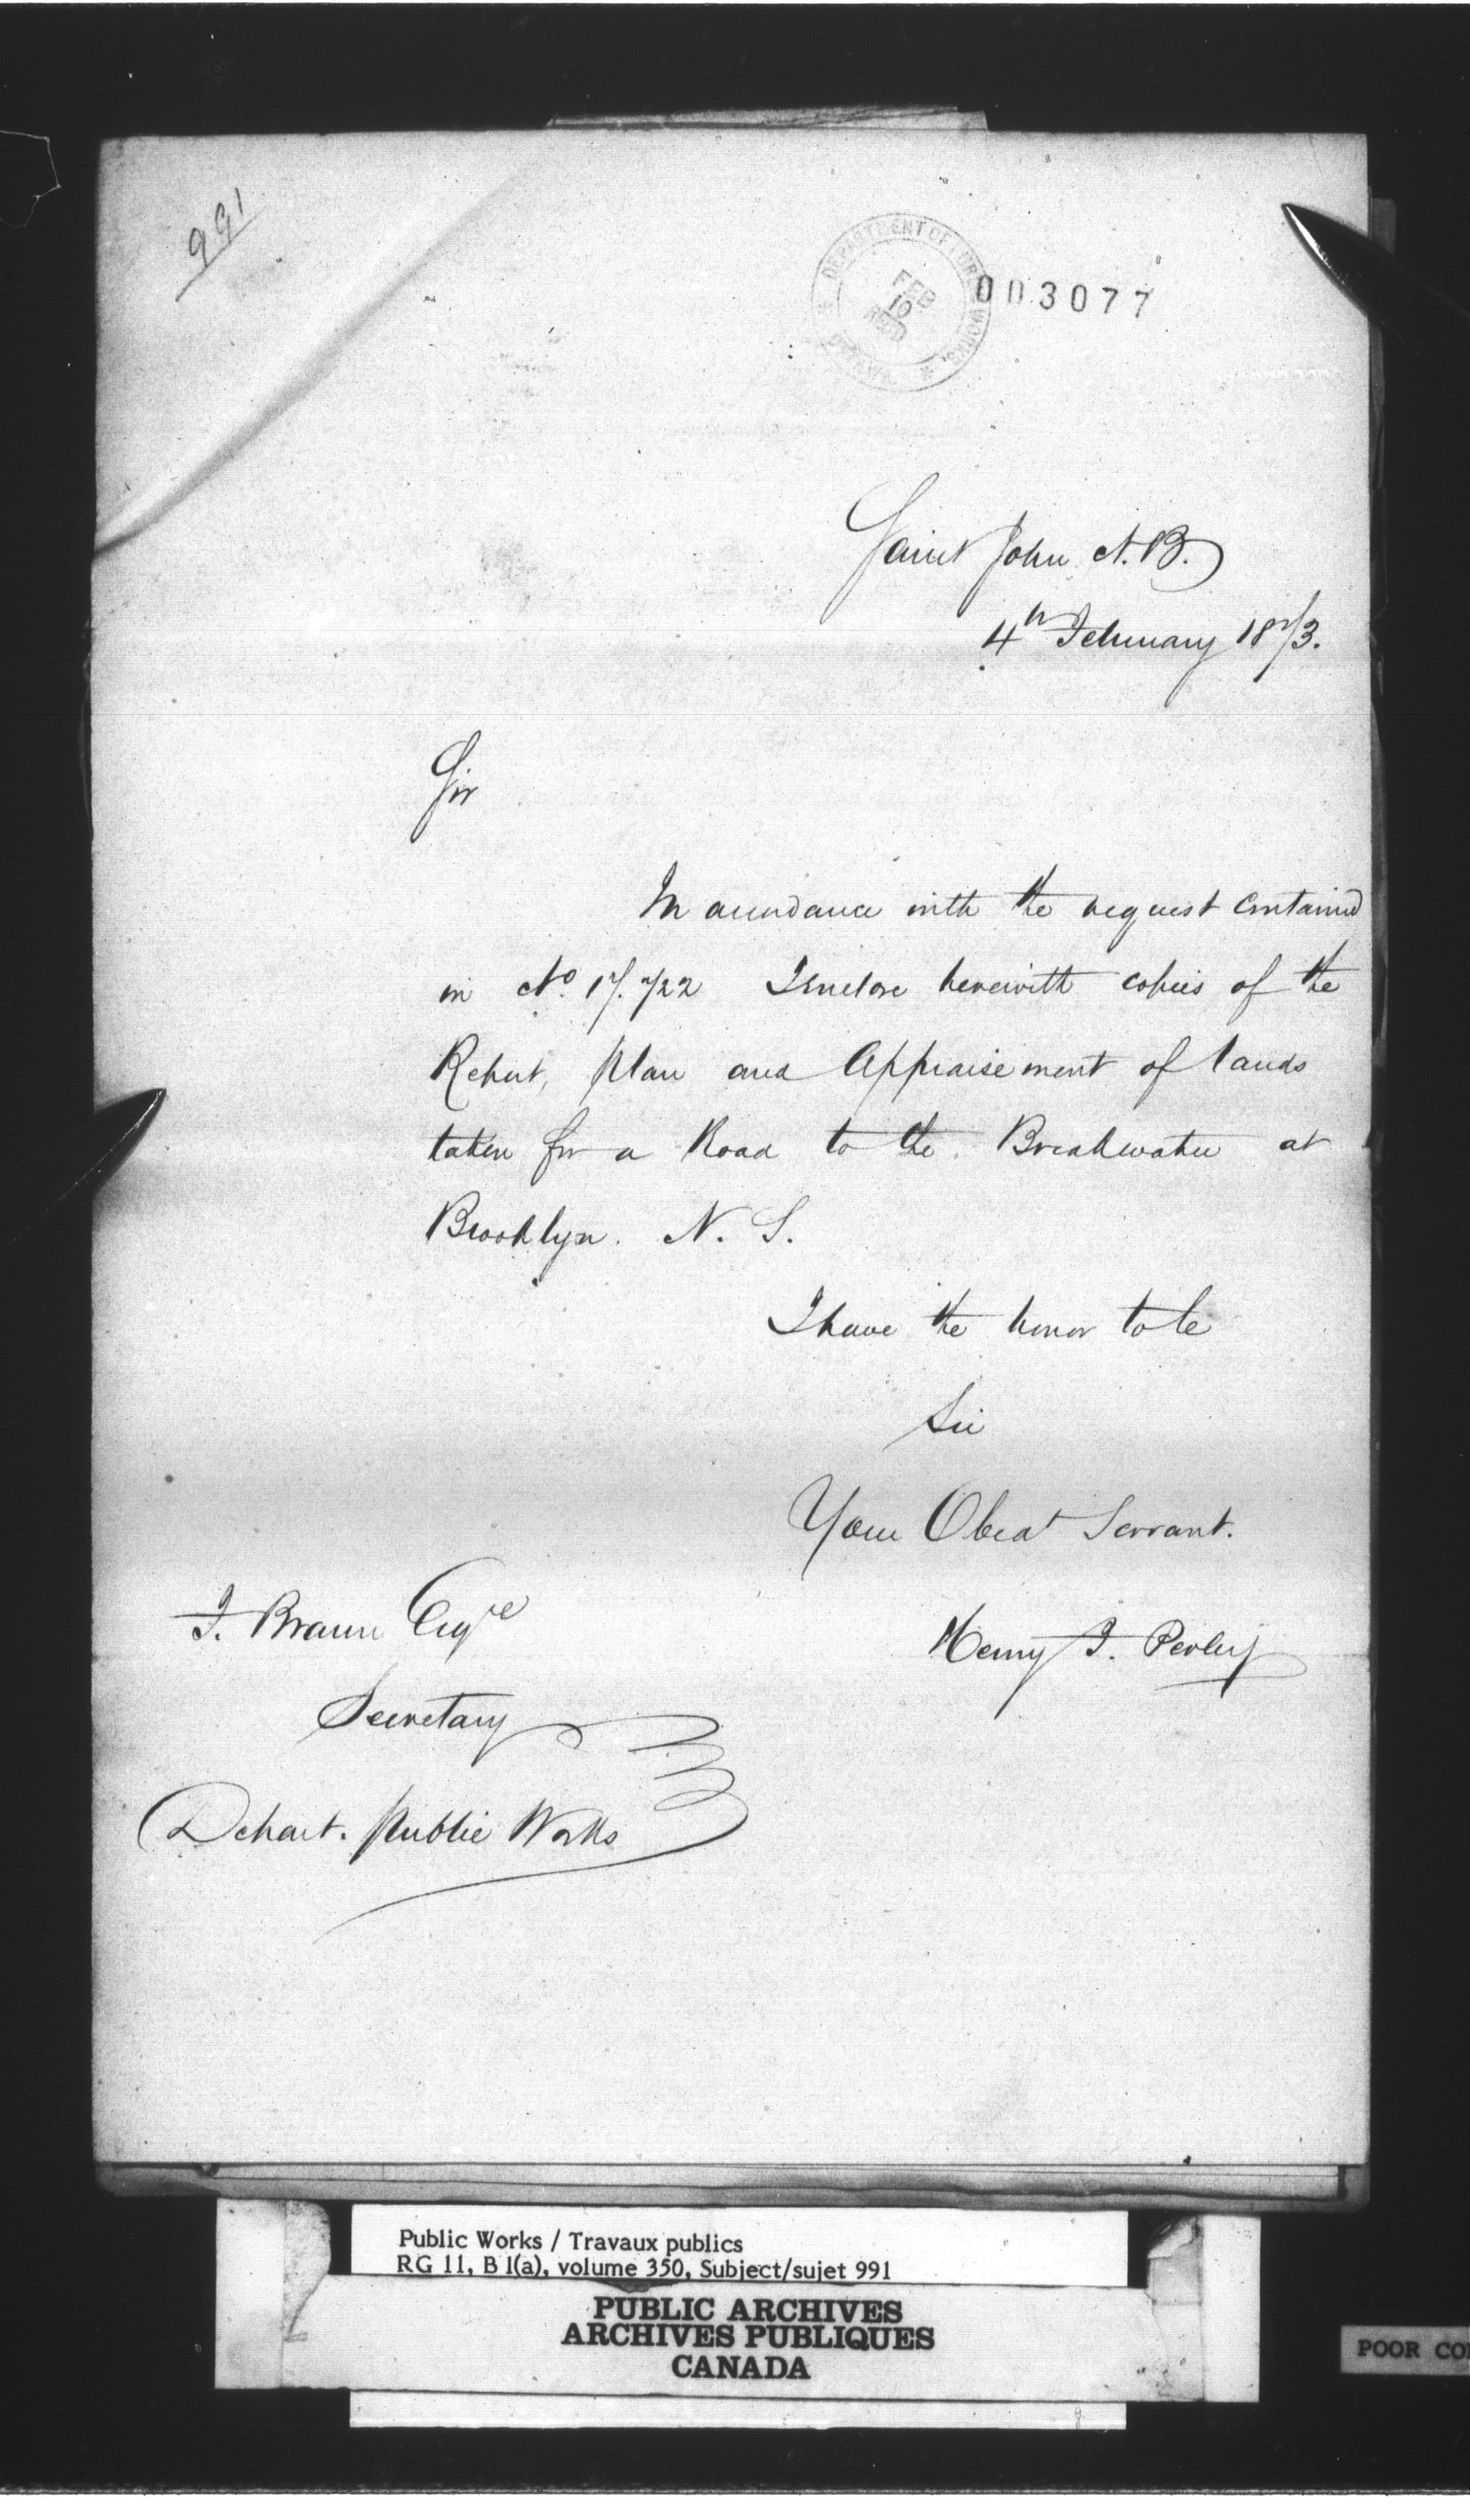 991
DEPARTMENT OF PUBLIC WORKS.
FEB
10
003077
Saint John N.B.
4th February 1873.
Sir
In accordance with the request contained
in No. 17.722 I enclose herewith copies of the
Report, plan and Appraisement of lands
taken for a Road to the Breakwater at
Brooklyn. N. S.
I have the honor to be
Sir
Your Obedt Servant.
Henry F. Perley
F. Braun Esqre
Secretary
Depart. Public Works
Public Works / Travaux publics
RG 11, B 1(a), volume 350, Subject/sujet 991
PUBLIC ARCHIVES
ARCHIVES PUBLIQUES
CANADA
POOR CO